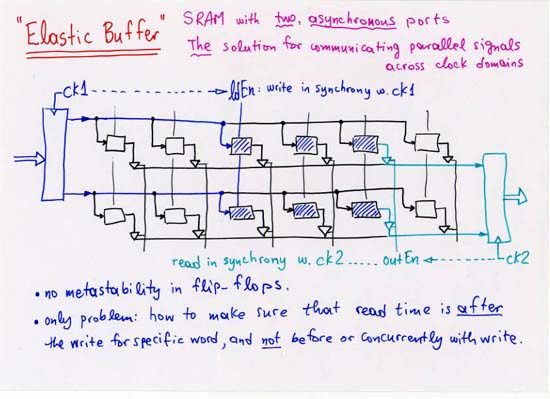 "Elastic Buffer"
SRAM with two, asynchronous ports
The solution for communicating parallel signals
across clock domains
ck1 ldEn: write in synchrony w. ck1
read in synchrony w. ck2 ..... outEn ck2
• no metastability in flip-flops.
• only problem: how to make sure that read time is after
the write for specific word, and not before or concurrently with write.